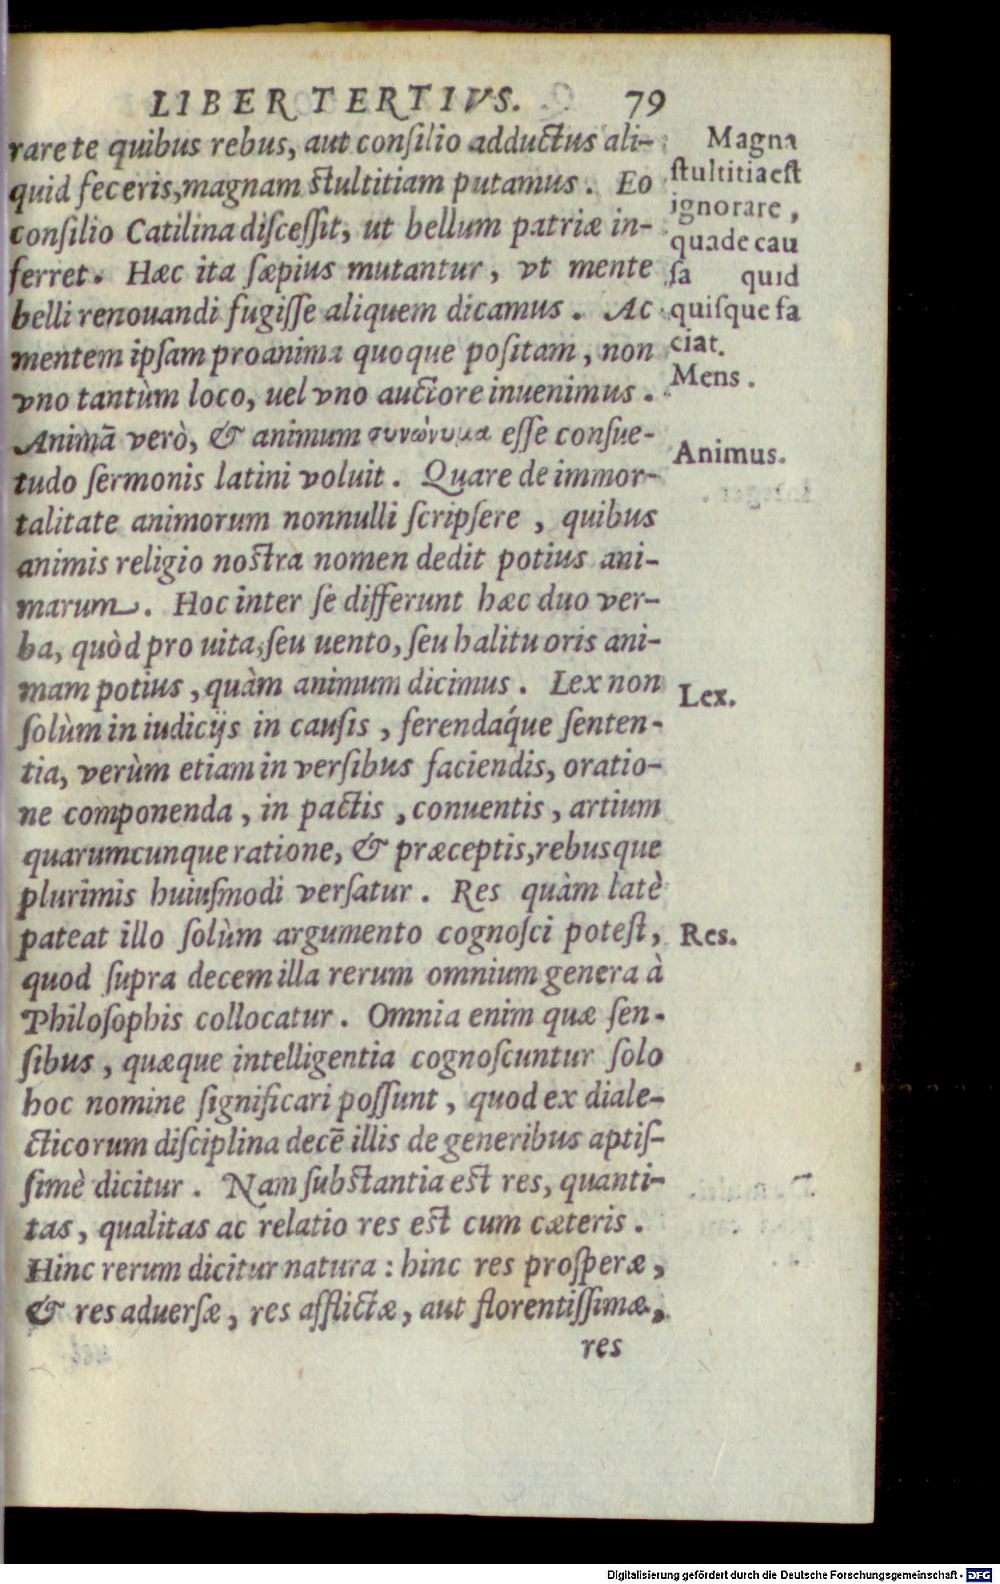 LIBER TERTIVS. 79
rare te quibus rebus, aut conſilio adductus ali-
quid feceris, magnam ſtultitiam putamus. Eo
conſilio Catilina diſceſſit, ut bellum patriæ in-
ferret. Hæc ita ſæpius mutantur, vt mente
belli renouandi fugiſſe aliquem dicamus. Ac
mentem ipſam pro anima quoque poſitam, non
vno tantùm loco, uel vno auctore inuenimus.
Animã verò, & animum συνώνυμα eſſe conſue-
tudo ſermonis latini voluit. Quare de immor-
talitate animorum nonnulli ſcripſere, quibus
animis religio noſtra nomen dedit potius ani-
marum. Hoc inter ſe differunt hæc duo ver-
ba, quòd pro uita, ſeu uento, ſeu halitu oris ani-
mam potius, quàm animum dicimus. Lex non
ſolùm in iudicijs in cauſis, ferendáque ſenten-
tia, verùm etiam in verſibus faciendis, oratio-
ne componenda, in pactis, conuentis, artium
quarumcunque ratione, & præceptis, rebusque
plurimis huiuſmodi verſatur. Res quàm latè
pateat illo ſolùm argumento cognoſci poteſt,
quod ſupra decem illa rerum omnium genera à
Philoſophis collocatur. Omnia enim quæ ſen-
ſibus, quæque intelligentia cognoſcuntur ſolo
hoc nomine ſignificari poſſunt, quod ex diale-
cticorum diſciplina decẽ illis de generibus aptiſ-
ſimè dicitur. Nam ſubſtantia eſt res, quanti-
tas, qualitas ac relatio res eſt cum cæteris.
Hinc rerum dicitur natura: hinc res proſperæ,
& res aduerſæ, res afflictæ, aut florentiſſimæ,
res
Magna
ſtultitia eſt
ignorare,
qua de cau
ſa quid
quiſque fa
ciat.
Mens.
Animus.
Lex.
Res.
Digitalisierung gefördert durch die Deutsche Forschungsgemeinschaft - DFG